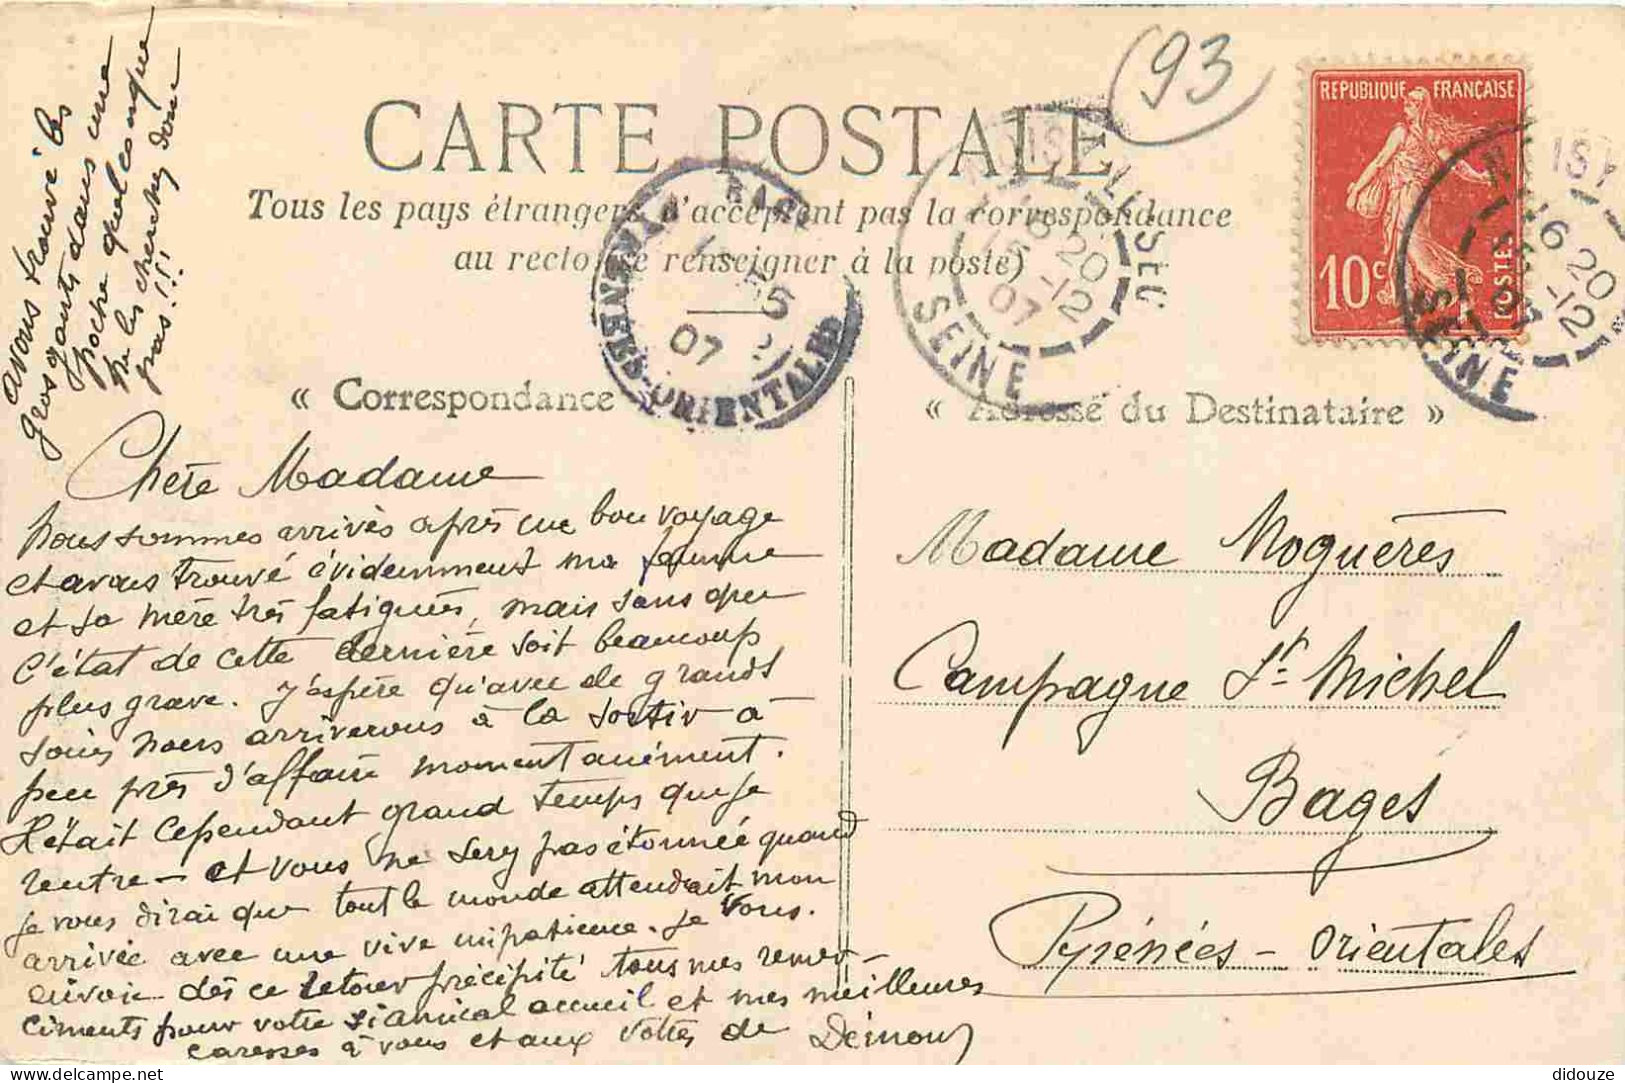 (93)
REPUBLIQUE FRANÇAISE
10c POSTES
CARTE POSTALE
Tous les pays étrangers n'acceptent pas la correspondance
au recto (se renseigner à la poste)
NOISY-LE-SEC
16 20
15 -12
07
SEINE
BAGES
15
07
PYRÉNÉES-ORIENTALES
« Correspondance »
« Adresse du Destinataire »
avons trouvé les
gros gants dans une
poche quelconque
ne les cherchez donc
pas!!!
Chère Madame
Nous sommes arrivés après un bon voyage
et avons trouvé évidemment ma femme
et sa mère très fatiguées, mais sans que
l'état de cette dernière soit beaucoup
plus grave. J'espère qu'avec de grands
soins nous arriverons à la sortir à
peu près d'affaire momentanément.
Il était cependant grand temps que je
rentre - et vous ne serez pas étonnée quand
je vous dirai que tout le monde attendait mon
arrivée avec une vive impatience. Je vous
envoie dès ce retour précipité tous mes remer-
ciments pour votre si amical accueil et mes meilleures
caresses à vous et aux vôtres de
Madame Noguères
Campagne St Michel
Bages
Pyrénées-Orientales
didouze
delcampe.net